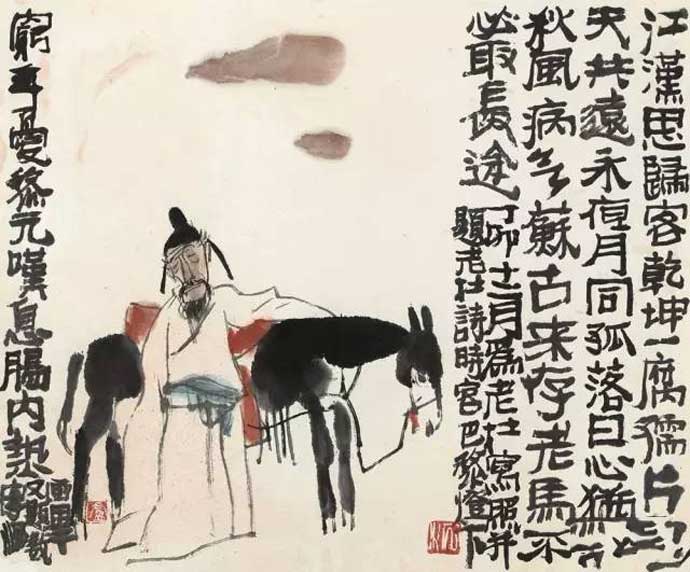 江漢思歸客乾坤一腐儒片云
天共遠永夜月同孤落日心猶壯
秋風病欲蘇古來存老馬不
必取長途
丁卯 月為老杜寫照并
題老杜詩時客巴黎燈下
窮年憂黎元嘆息腸内熱